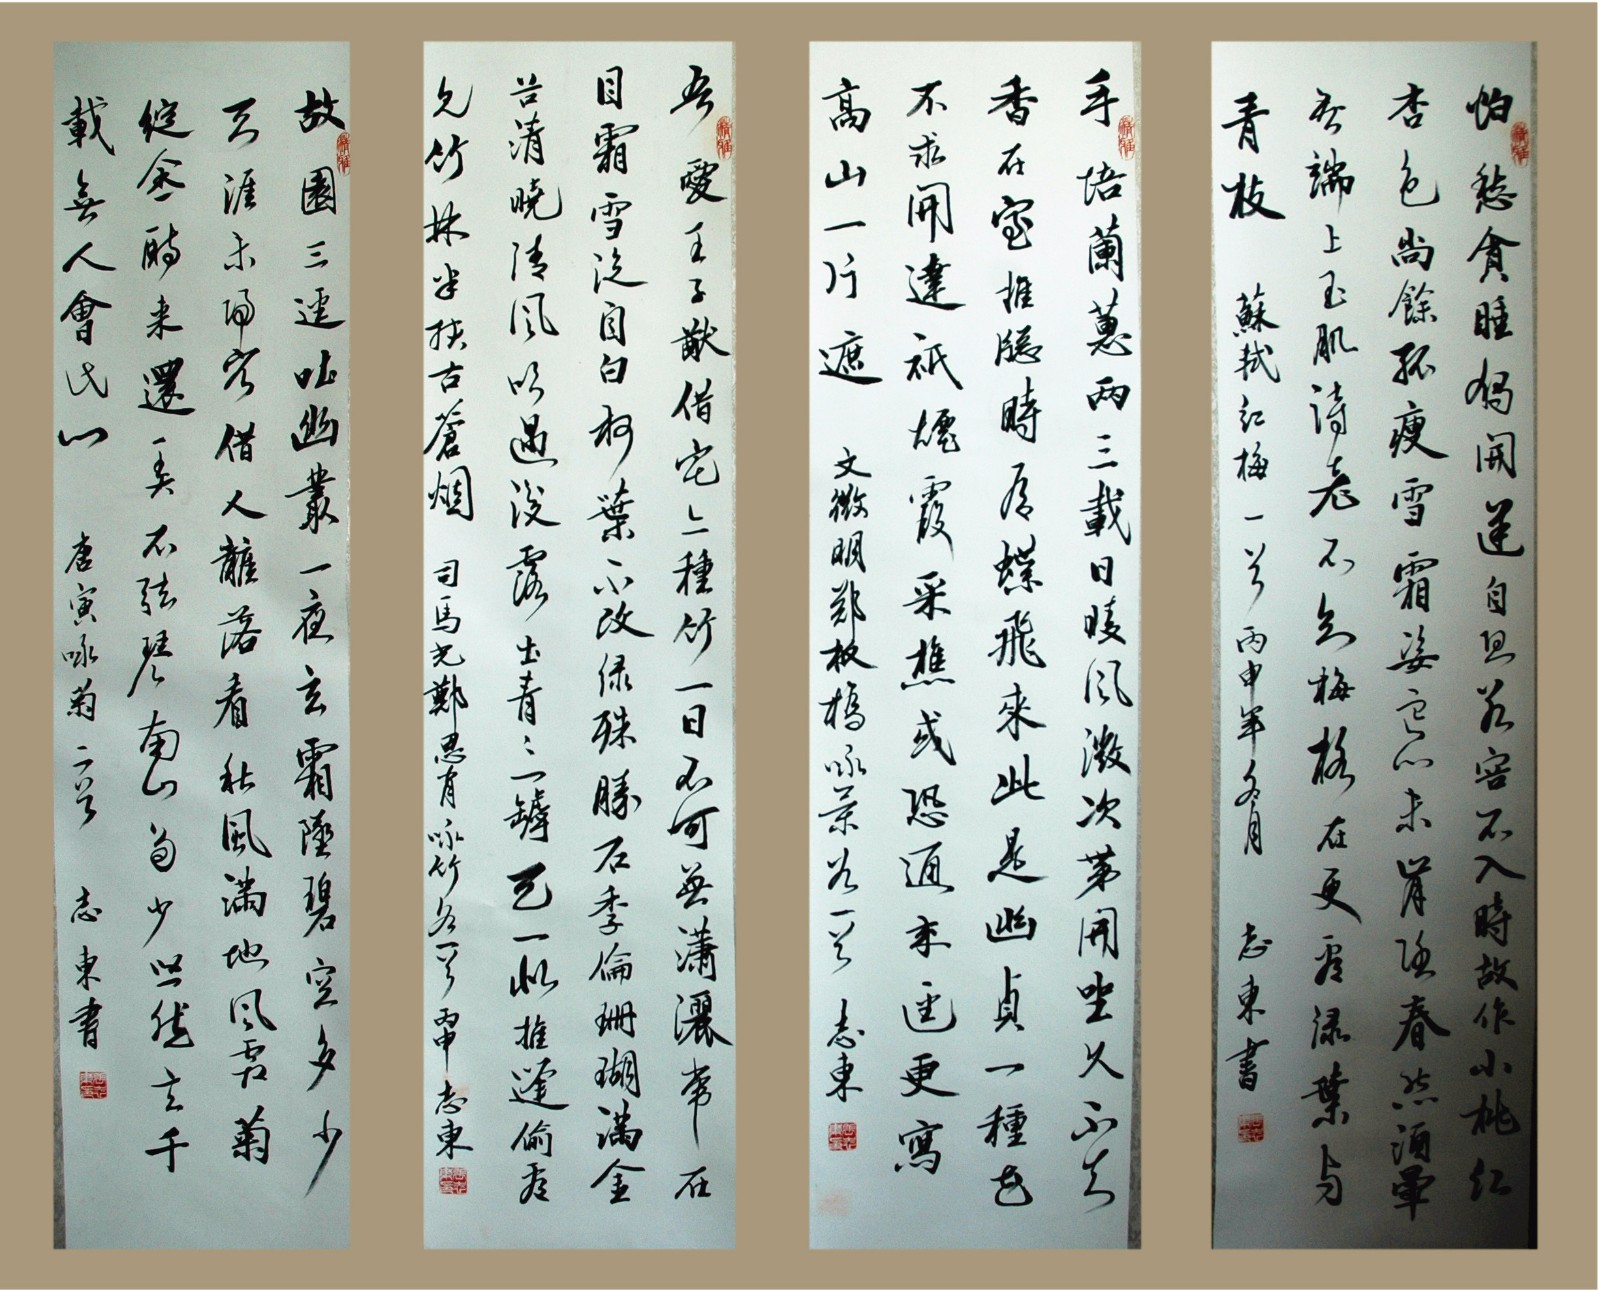 怕愁貪睡獨開遲自恐冰容不入時故作小桃紅
杏色尚餘孤瘦雪霜姿寒心未肯隨春態酒暈
無端上玉肌詩老不知梅格在更看綠葉與
青枝 蘇軾紅梅一首 丙申年冬月 志東書
手培蘭蕙兩三載日暖風微次第開坐久不知
香在室推窗時有蝶飛來此是幽貞一種花
不求聞達祇煙霞采樵或恐通來徑更寫
高山一片遮 文徵明鄭板橋咏蘭各一首 志東
吾愛王子猷借宅亦種竹一日不可無瀟灑常在
目霜雪徒自白柯葉不改綠殊勝石季倫珊瑚滿金
谷清曉清風吹過後露出青青一罅天一似推篷偷看
見竹林半抹古蒼烟 司馬光鄭思肖咏竹各一首 丙申 志東
故園三徑吐幽叢一夜玄霜墜碧空多少
天涯未歸客借人籬落看秋風滿地風霜菊
綻金醉來還弄不弦琴南山多少悠然意千
載無人會此心 唐寅咏菊二首 志東書